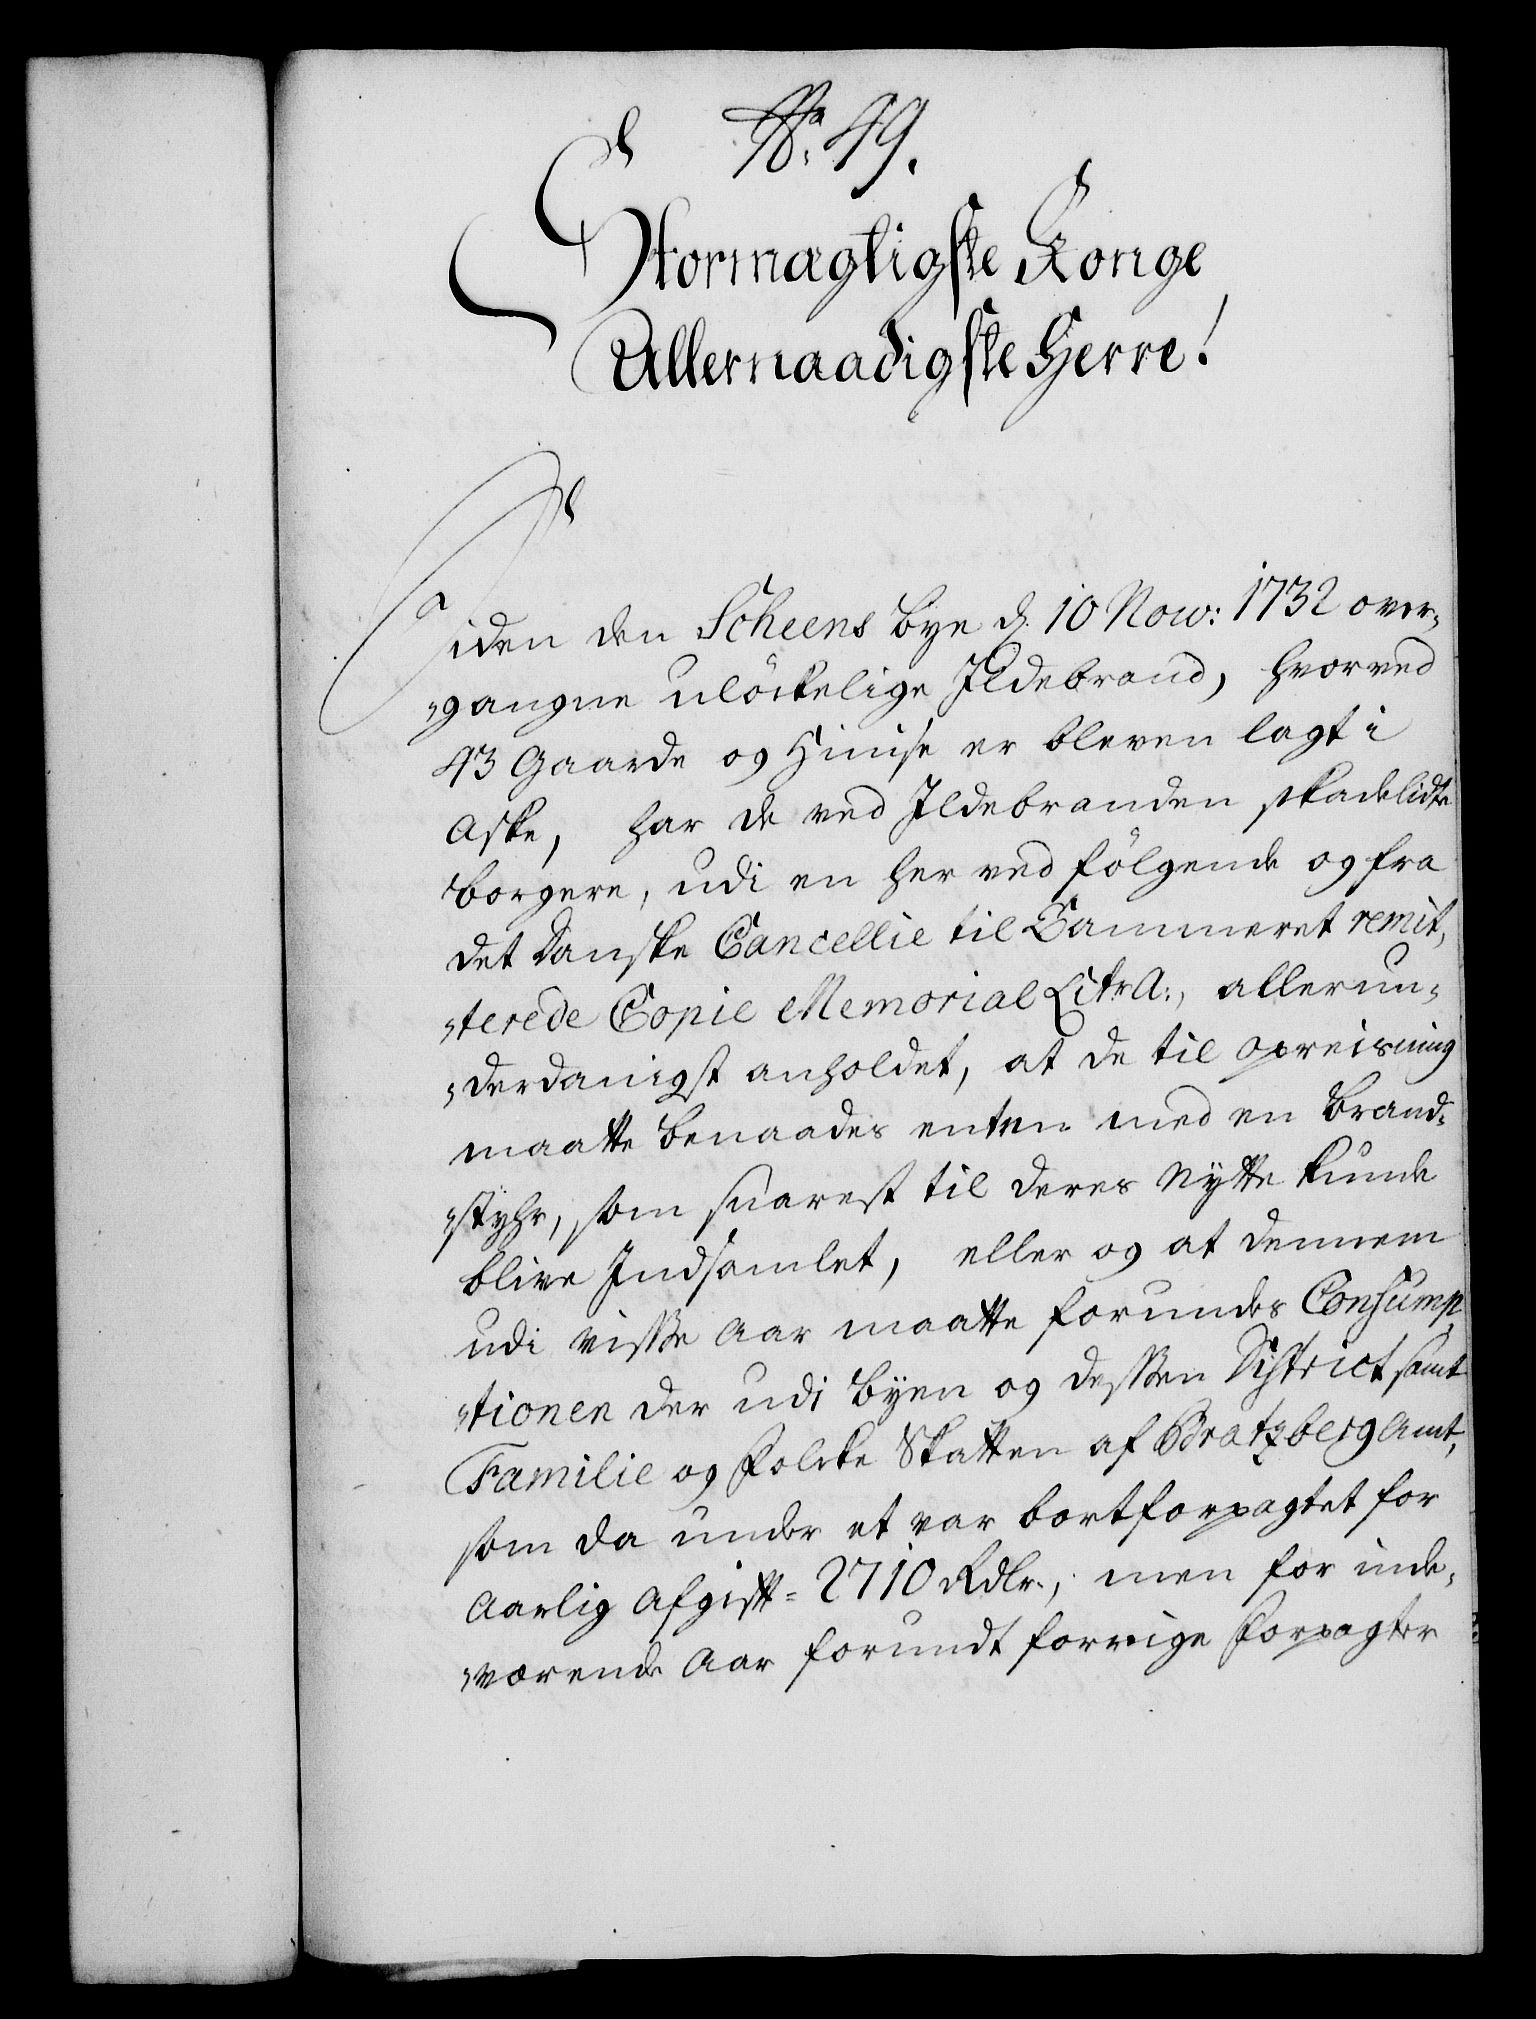 No. 49.
Stormægtigste Konge
Allernaadigste Herre!
Siden den Scheens Bye d. 10 Nov: 1732 over,
„gangne ulöckelige Ildebrand, hvorved
43 Gaarde og Huuse er bleven lagt i
Aske, har de ved Ildebranden skadelidte
borgere, udi en her ved följgende og fra
det Danske Cancellie til Cammeret remit,
„terede Copie Memorial Litr A:, allerun,
„derdanigst anholdet, at de til opreisning
maatte benaades enten med en Brand,
„styhr, som snarest til deres Nytte kunde
blive Indsamlet, eller og at dennem
udi visse Aar maatte forundes Consump,
„tionen der udi Byen og dessen District samt
Familie og Folcke Skatten af Bratzberg Amt,
som da under et var bortforpagtet for
Aarlig Afgift = 2710 Rdlr., men for inde,
„værende Aar forundt forrige Forpagter